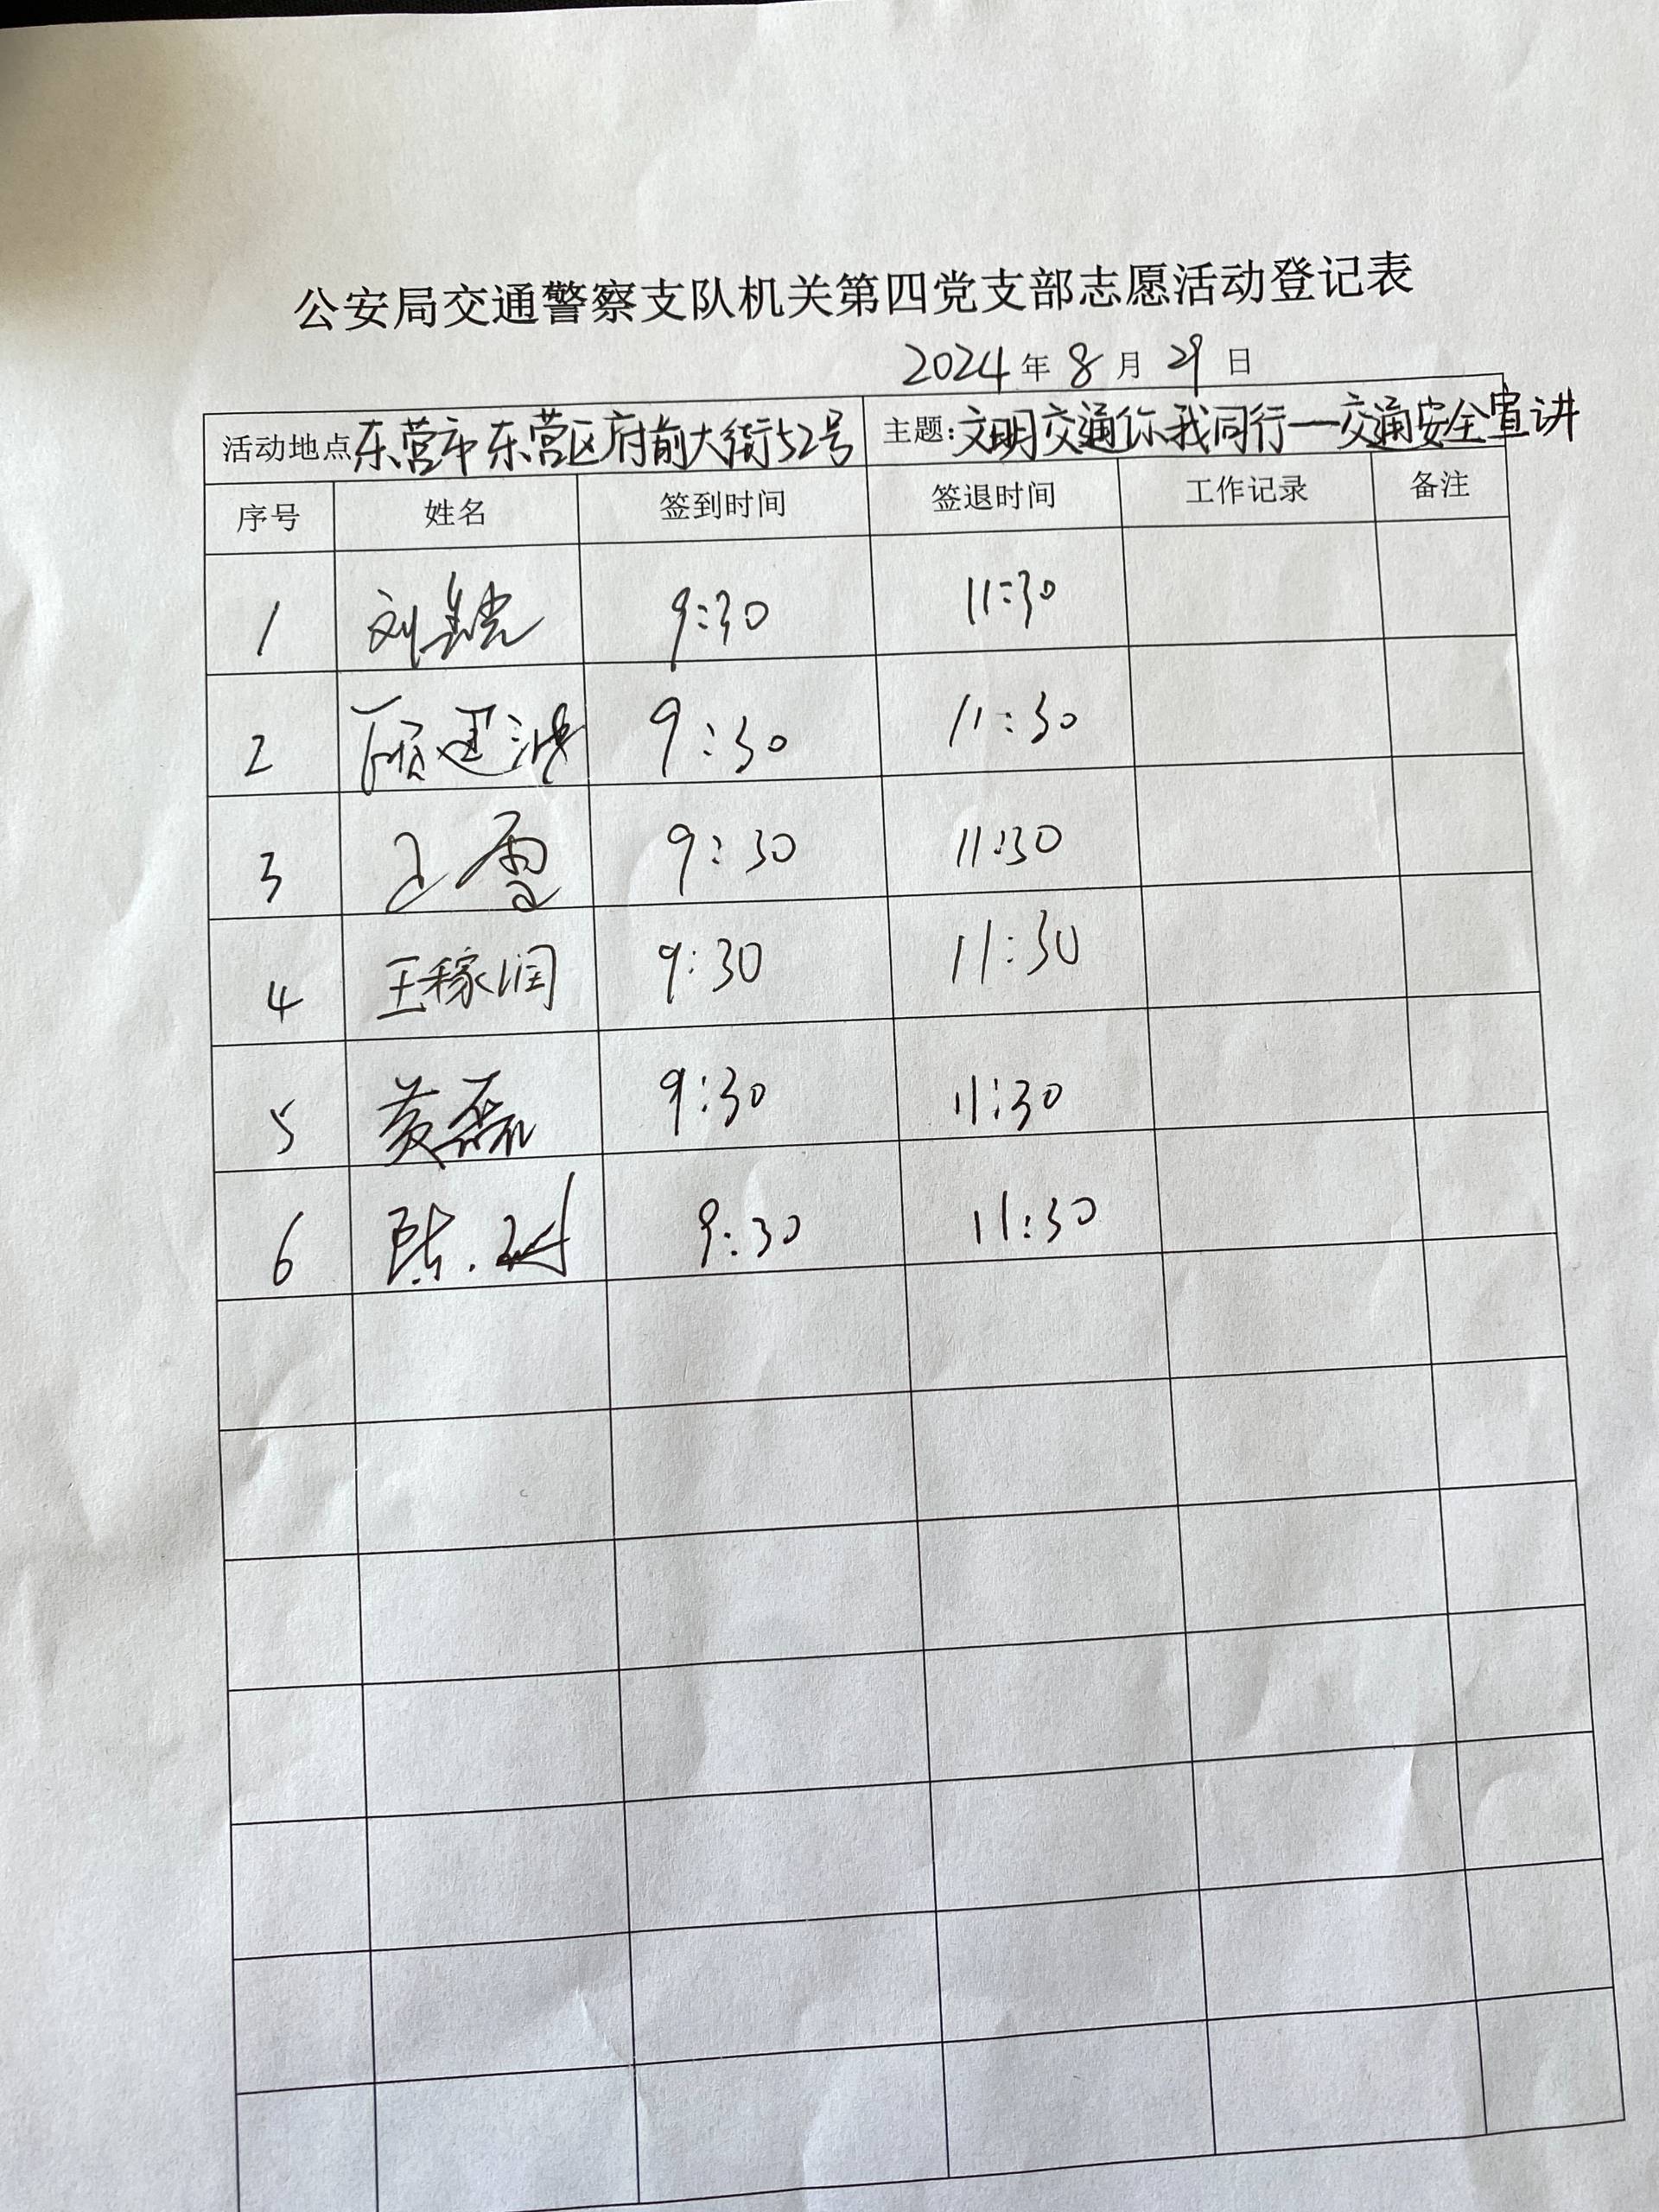 公安局交通警察支队机关第四党支部志愿活动登记表
2024年8月29日
活动地点东营市东营区府前大街52号 主题:文明交通你我同行一交通安全宣讲
序号 姓名 签到时间 签退时间 工作记录 备注
1 刘 9:30 11:30
2 9:30 11:30
3 王雪 9:30 11:30
4 王稼润 9:30 11:30
5 黄磊 9:30 11:30
6 陈 9:30 11:30